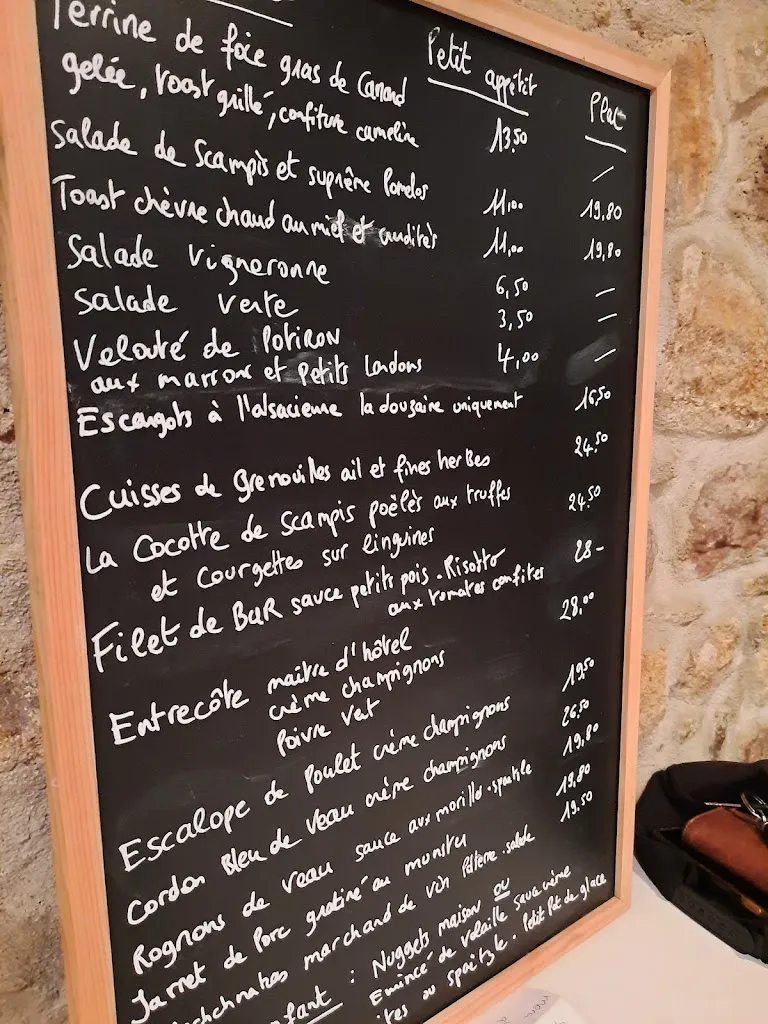 Terrine de foie gras de Canard Petit appétit Plat
gelée, toast grillé, confiture cameline 13,50 —
Salade de Scampis et suprême Pomelos 11,00 19,80
Toast chèvre chaud au miel et crudités 11,00 19,80
Salade vigneronne 6,50 —
Salade verte 3,50 —
Velouté de POTIRON 4,00 —
aux marrons et Petits Lardons
Escargots à l'alsacienne la douzaine uniquement 16,50
Cuisses de grenouilles ail et fines herbes 24,50
La Cocotte de Scampis poëlés aux truffes 24,50
et courgettes sur linguines
Filet de BAR sauce petits pois . Risotto 28-
aux tomates confites
Entrecôte maitre d'hôtel 28,00
crème champignons
Poivre vert
Escalope de Poulet crème champignons 19,50
Cordon Bleu de veau crème champignons 26,50
Rognons de veau sauce aux morilles . spaetzle 19,80
Jarret de Porc gratiné au munster 19,80
marchand de vin . salade 19.50
: Nuggets maison ou
Emincé de volaille sauce crème
ou spaëtzle . Petit Pot de glace